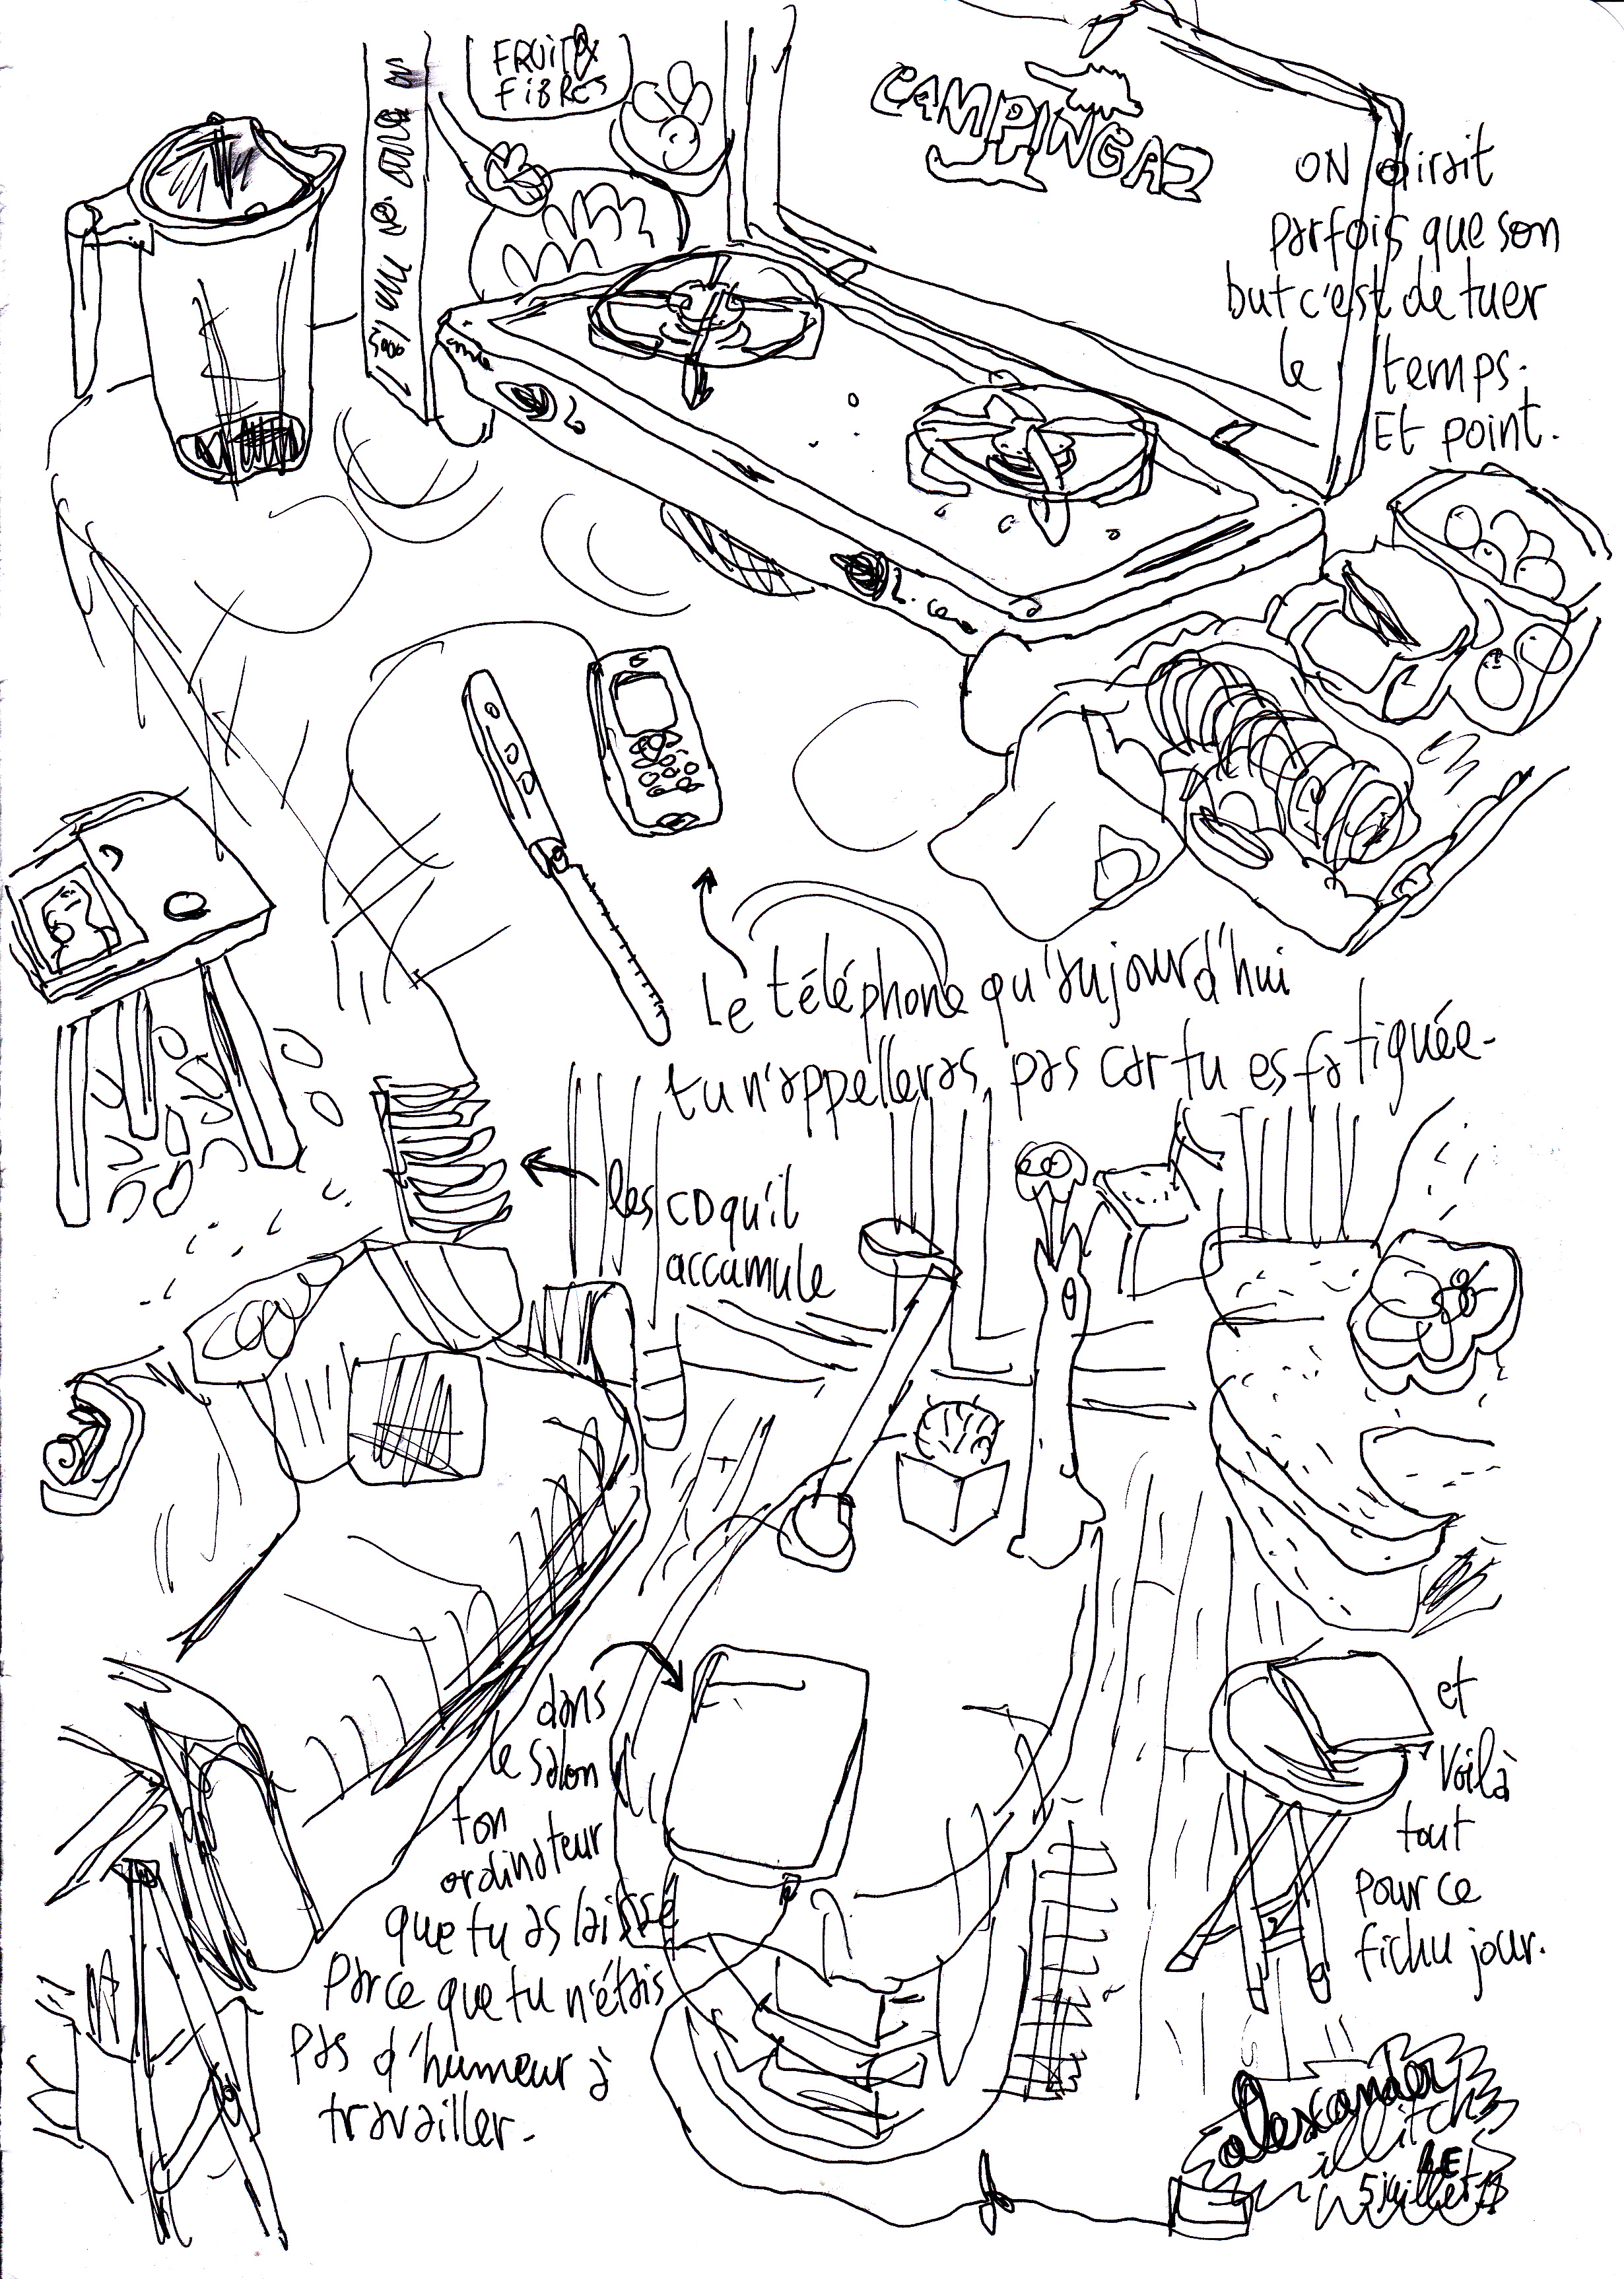 FRUIT &
FIBRES
CAMPINGAZ
ON dirait
parfois que son
but c'est de tuer
le temps.
Et point.
Le téléphone qu'aujourd'hui
tu n'appelleras pas car tu es fatiguée.
les CD qu'il
accumule
dans
le salon
ton
ordinateur
que tu as laissé
parce que tu n'étais
pas d'humeur à
travailler.
et
Voilà
tout
pour ce
fichu jour.
illitch
LE
5 juillet